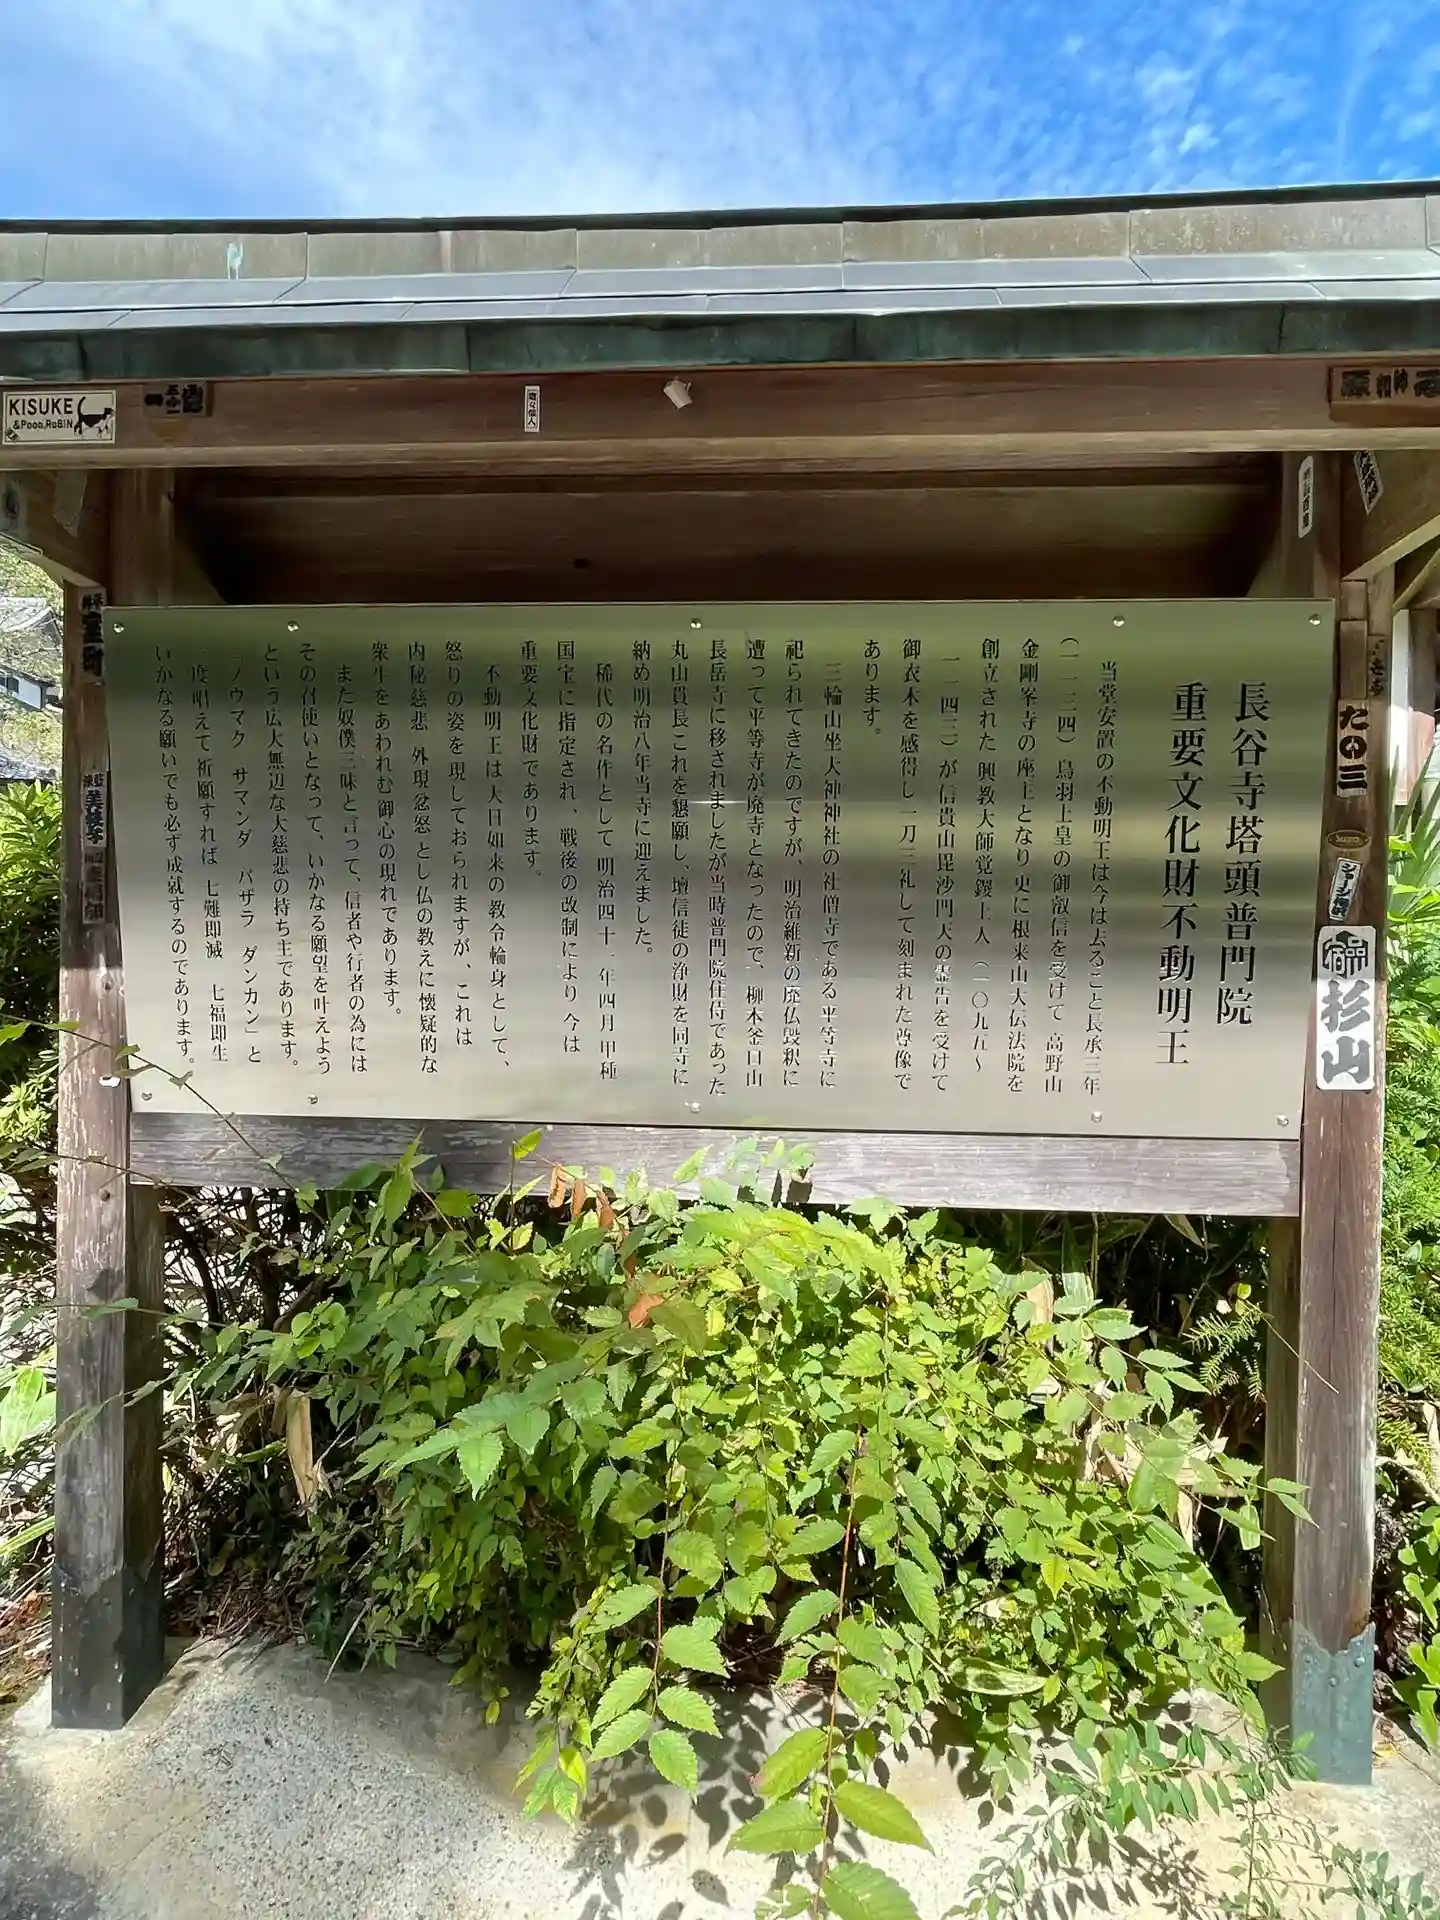 長谷寺塔頭普門院
重要文化財不動明王
当堂安置の不動明王は今は去ること長承三年
(一一三四)鳥羽上皇の御叡信を受けて 高野山
金剛峯寺の座主となり更に根来山大伝法院を
創立された興教大師覚鑁上人(一〇九五～
一一四三)が信貴山毘沙門天の霊告を受けて
御衣木を感得し一刀三礼して刻まれた尊像で
あります。
三輪山坐大神神社の社僧寺である平等寺に
祀られてきたのですが、明治維新の廃仏毀釈に
遭って平等寺が廃寺となったので、柳本釜口山
長岳寺に移されましたが当時普門院住侍であった
丸山貫長これを懇願し、壇信徒の浄財を同寺に
納め明治八年当寺に迎えました。
稀代の名作として明治四十一年四月甲種
国宝に指定され、戦後の改制により今は
重要文化財であります。
不動明王は大日如来の教令輪身として、
怒りの姿を現しておられますが、これは
内秘慈悲 外現忿怒 とし仏の教えに懐疑的な
衆生をあわれむ御心の現れであります。
また奴僕三昧と言って、信者や行者の為には
その召使いとなって、いかなる願望を叶えよう
という広大無辺な大慈悲の持ち主であります。
「ノウマク サマンダ バザラ ダンカン」と
度唱えて祈願すれば 七難即滅 七福即生
いかなる願いでも必ず成就するのであります。
KISUKE
&Pooo,RoBiN
杉山